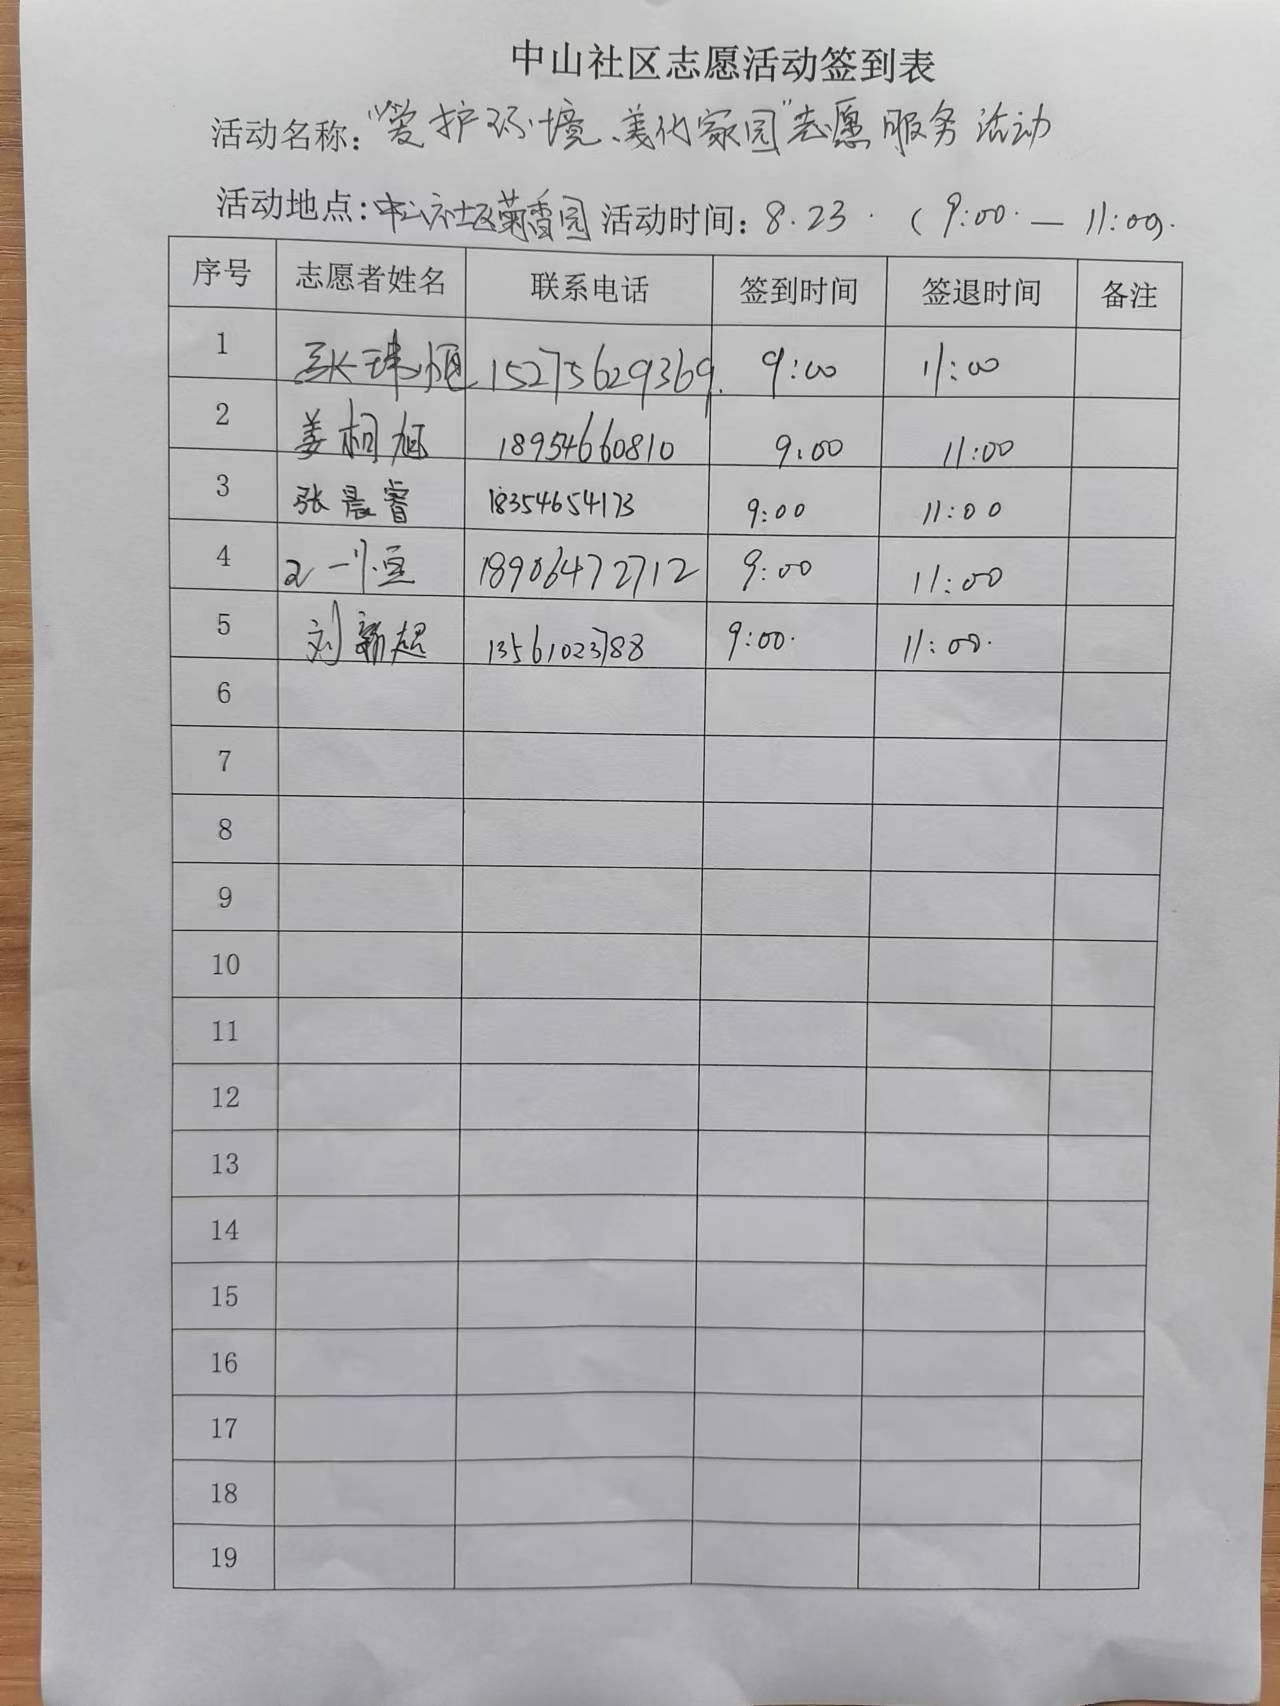 中山社区志愿活动签到表
活动名称:“爱护环境、美化家园”志愿服务活动
活动地点:中山社区菊香园 活动时间: 8.23. (9:00.—11:00).
序号 志愿者姓名 联系电话 签到时间 签退时间 备注
1 张玮恒 15275629369. 9:00 11:00
2 姜桐旭 18954660810 9:00 11:00
3 张晨睿 18354654173 9:00 11:00
4 18906472712 9:00 11:00
5 刘新超 13561023788 9:00. 11:00.
6
7
8
9
10
11
12
13
14
15
16
17
18
19